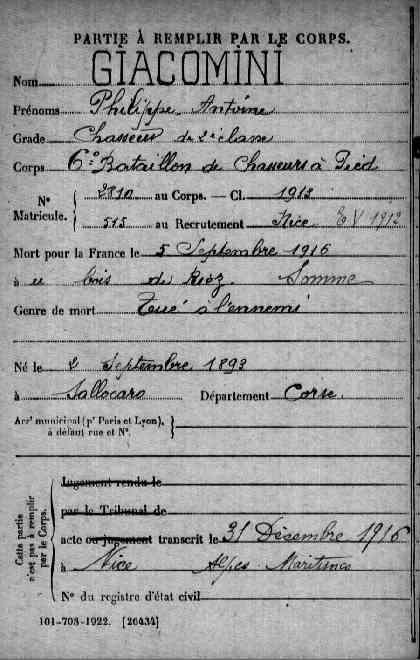 PARTIE À REMPLIR PAR LE CORPS.
Nom GIACOMINI
Prénoms Philippe Antoine
Grade Chasseur de 2e classe
Corps 6e Bataillon de Chasseurs à Pied
N° Matricule. { 2810 au Corps. — Cl. 1913
515 au Recrutement Nice EV 1912
Mort pour la France le 5 Septembre 1916
à bois de Somme
Genre de mort Tué à l'ennemi
Né le 2 Septembre 1893
à Sallocaro Département Corse.
Arrt municipal (pr Paris et Lyon), à défaut rue et N°. }
Cette partie n'est pas à remplir par le Corps.
Jugement rendu le
par le Tribunal de
acte ou jugement transcrit le 31 Décembre 1916
à Nice Alpes Maritimes
N° du registre d'état civil
101-708-1922. [26434]